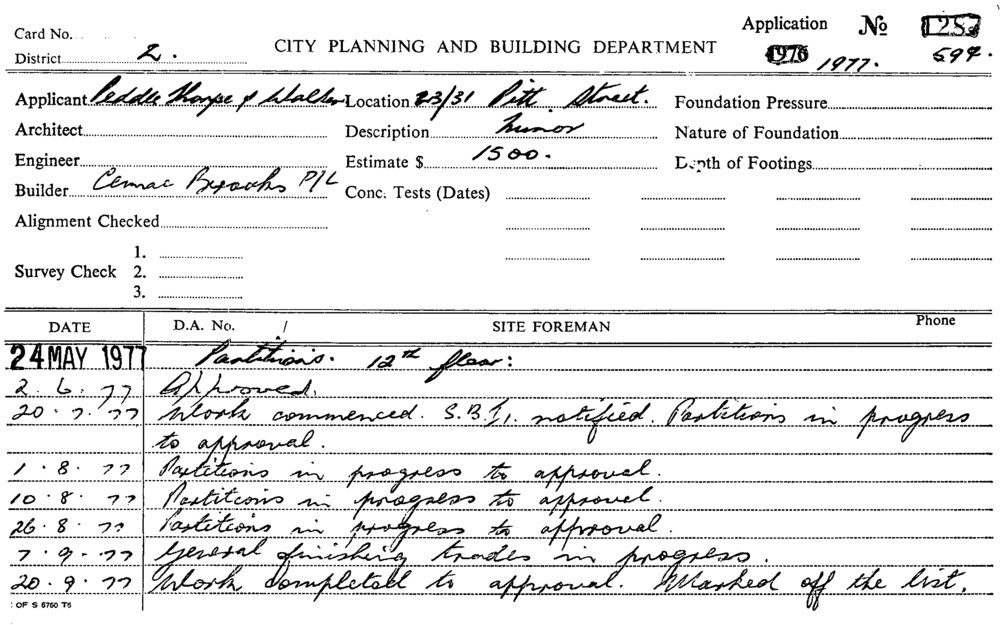 Application No 1287
Card No.
District 2. CITY PLANNING AND BUILDING DEPARTMENT 1976 1977. 594.
Applicant Peddle Thorpe & Walker Location 23/31 Pitt Street. Foundation Pressure
Architect Description Minor Nature of Foundation
Engineer Estimate $ 1500. Depth of Footings
Builder Cemac Brooks P/L Conc. Tests (Dates)
Alignment Checked
1.
Survey Check 2.
3.
DATE D.A. No. / SITE FOREMAN Phone
24 MAY 1977 Partitions. 12th floor:
2. 6. 77 Approved.
20. 7. 77 Work commenced. S.B.I. notified. Partitions in progress
to approval.
1. 8. 77 Partitions in progress to approval.
10. 8. 77 Partitions in progress to approval.
26. 8. 77 Partitions in progress to approval.
7. 9. 77 General finishing trades in progress.
20. 9. 77 Work completed to approval. Marked off the list.
OF S 6760 T6